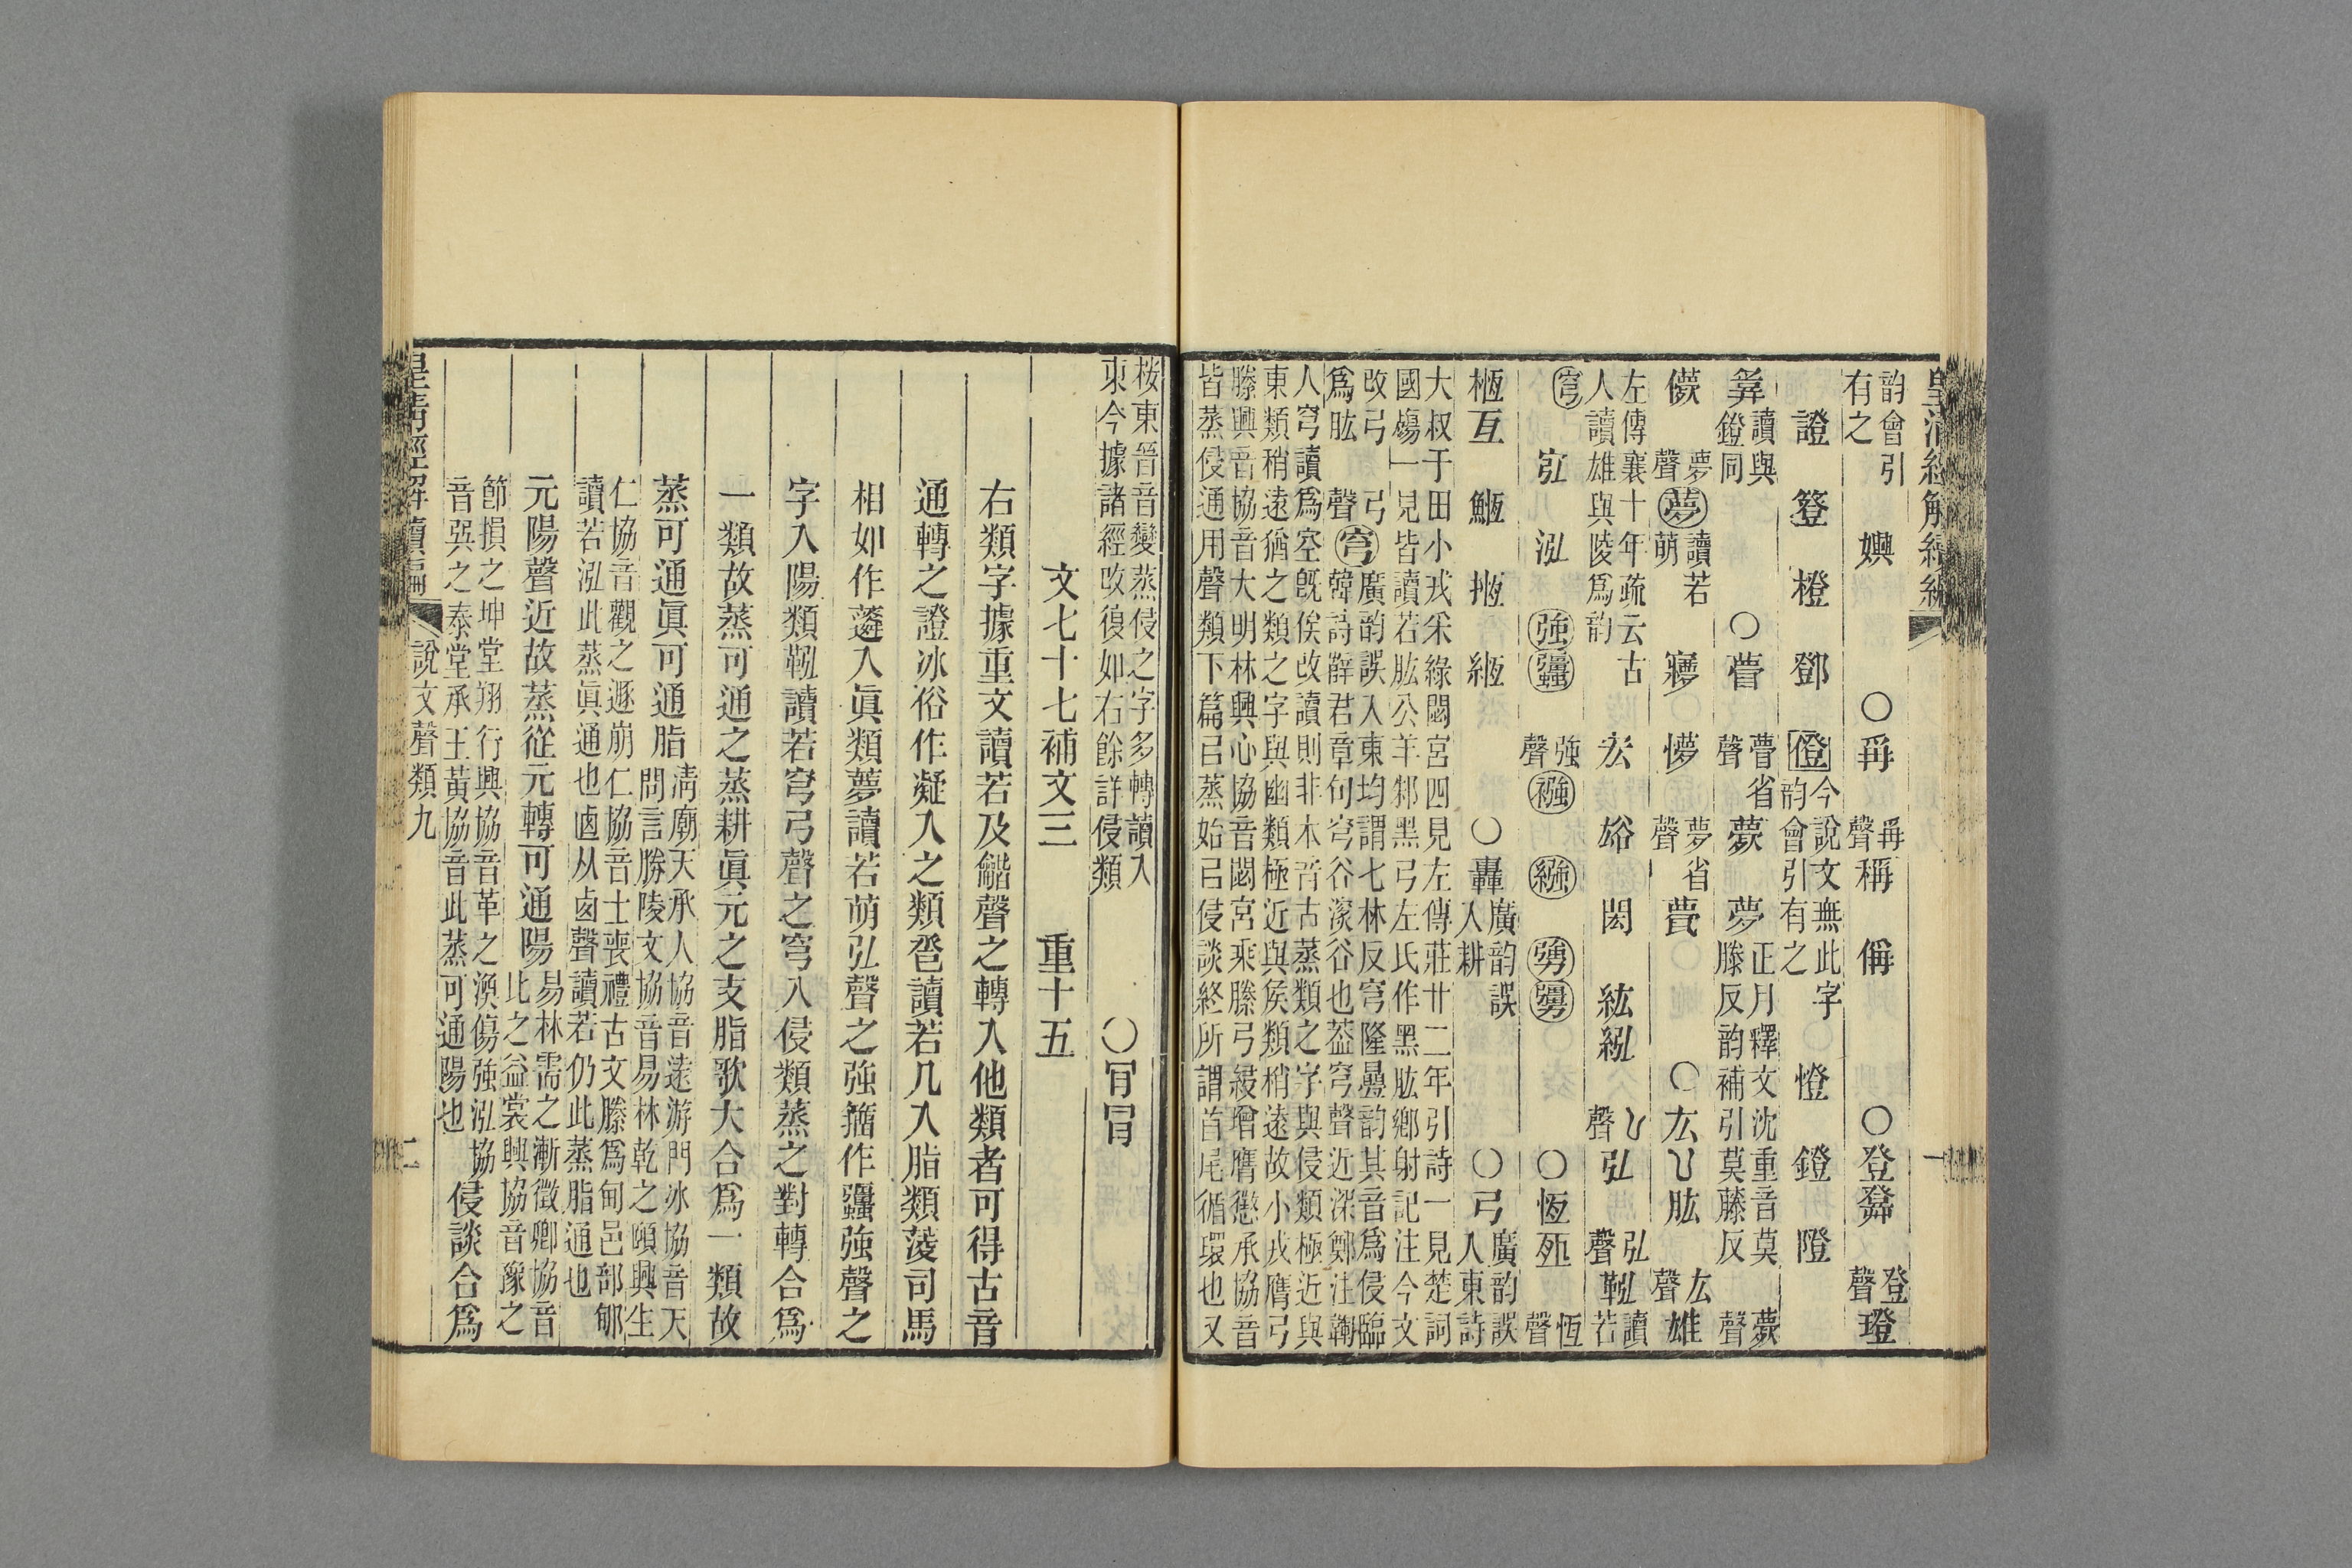 皇清經解續編
一
韵會引有之　嬹　○爯　爯聲稱　偁　○登𤼷　登聲璒
證　簦　橙　鄧　僜今說文無此字韵會引有之　憕　鐙　隥
讀與鐙同　○瞢　瞢省聲夢　夢正月釋文沈重音莫滕反韵補引莫藤反　聲
儚　夢聲夢讀若萌　寢　懜　夢省聲薨　○厷𠃋肱　厷聲雄
左傳襄十年疏云古人讀雄與陵爲韵　宏　谹　閎　紘紭　𠃋聲弘　弘聲鞃讀若
穹　宖　泓　強彊　強聲襁　繈　勥　○恆𠄨　恆聲
𣕲亙　䱍　搄　緪　○轟廣韵誤入耕　○弓廣韵誤入東詩
大叔于田小戎采綠閟宮四見左傳莊廿二年引詩一見楚詞
國殤一見皆讀若肱公羊邾黑弓左氏作黑肱鄉射記注今文
改弓爲肱　弓聲穹廣韵誤入東均謂七林反穹隆曡韵其音爲侵臨
韓詩辭君章句穹谷深谷也葢穹聲近深鄭注鞠
人穹讀爲空旣俟改讀則非本音古蒸類之字與侵類極近與
東類稍遠猶之類之字與幽類極近與矦類稍遠故小戎膺弓
縢興音協音大明林興心協音閟宮乘縢弓綅增膺懲承協音
皆蒸侵通用聲類下篇㠯蒸始㠯侵談終所謂首尾循環也又
桉東晉音變蒸侵之字多轉讀入
東今據諸經攷復如右餘詳侵類　○肎肎
文七十七補文三　重十五
右類字據重文讀若及龤聲之轉入他類者可得古音
通轉之證冰俗作凝入之類卺讀若几入脂類淩司馬
相如作蔆入眞類夢讀若萌弘聲之強籀作彊強聲之
字入陽類鞃讀若穹弓聲之穹入侵類蒸之對轉合爲
一類故蒸可通之蒸耕眞元之支脂歌大合爲一類故
蒸可通眞可通脂淸廟天承人協音遠游門冰協音天問言勝陵文協音易林乾之頤興生
仁協音觀之遯崩仁協音士喪禮古文縢爲甸邑部鄊讀若泓此蒸眞通也鹵从鹵聲讀若仍此蒸脂通也
元陽聲近故蒸從元轉可通陽易林需之漸徵卿協音此之益裳興協音豫之
節損之坤堂翔行興協音革之渙傷強泓協音巽之泰堂承王黃協音此蒸可通陽也　侵談合爲
皇清經解續編
說文聲類九
二